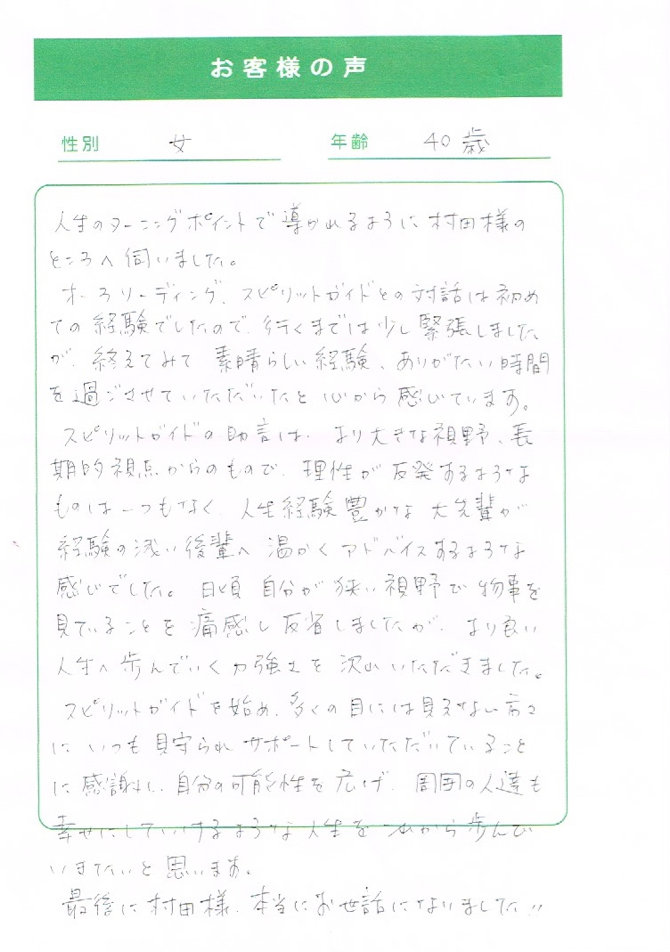 お客様の声
性別 女 年齢 40歳
人生のターニングポイントで導かれるように村田様の
ところへ伺いました。
オーラリーディング、スピリットガイドとの対話は初め
ての経験でしたので、行くまでは少し緊張しました
が、終えてみて 素晴らしい経験、ありがたい時間
を過ごさせていただいたと心から感じています。
スピリットガイドの助言は、より大きな視野、長
期的視点からのもので、理性が反発するような
ものは一つもなく、人生経験豊かな 大先輩が
経験の浅い後輩へ 温かくアドバイスするような
感じでした。日頃 自分が狭い視野で物事を
見ていることを痛感し反省しましたが、より良い
人生へ歩んでいく力強さを沢山いただきました。
スピリットガイドを始め、多くの目には見えない方々
に いつも見守られサポートしていただいていること
に感謝し、自分の可能性を広げ、周囲の人達も
幸せにしていけるような人生をこれから歩んで
いきたいと思います。
最後に村田様、本当にお世話になりました!!